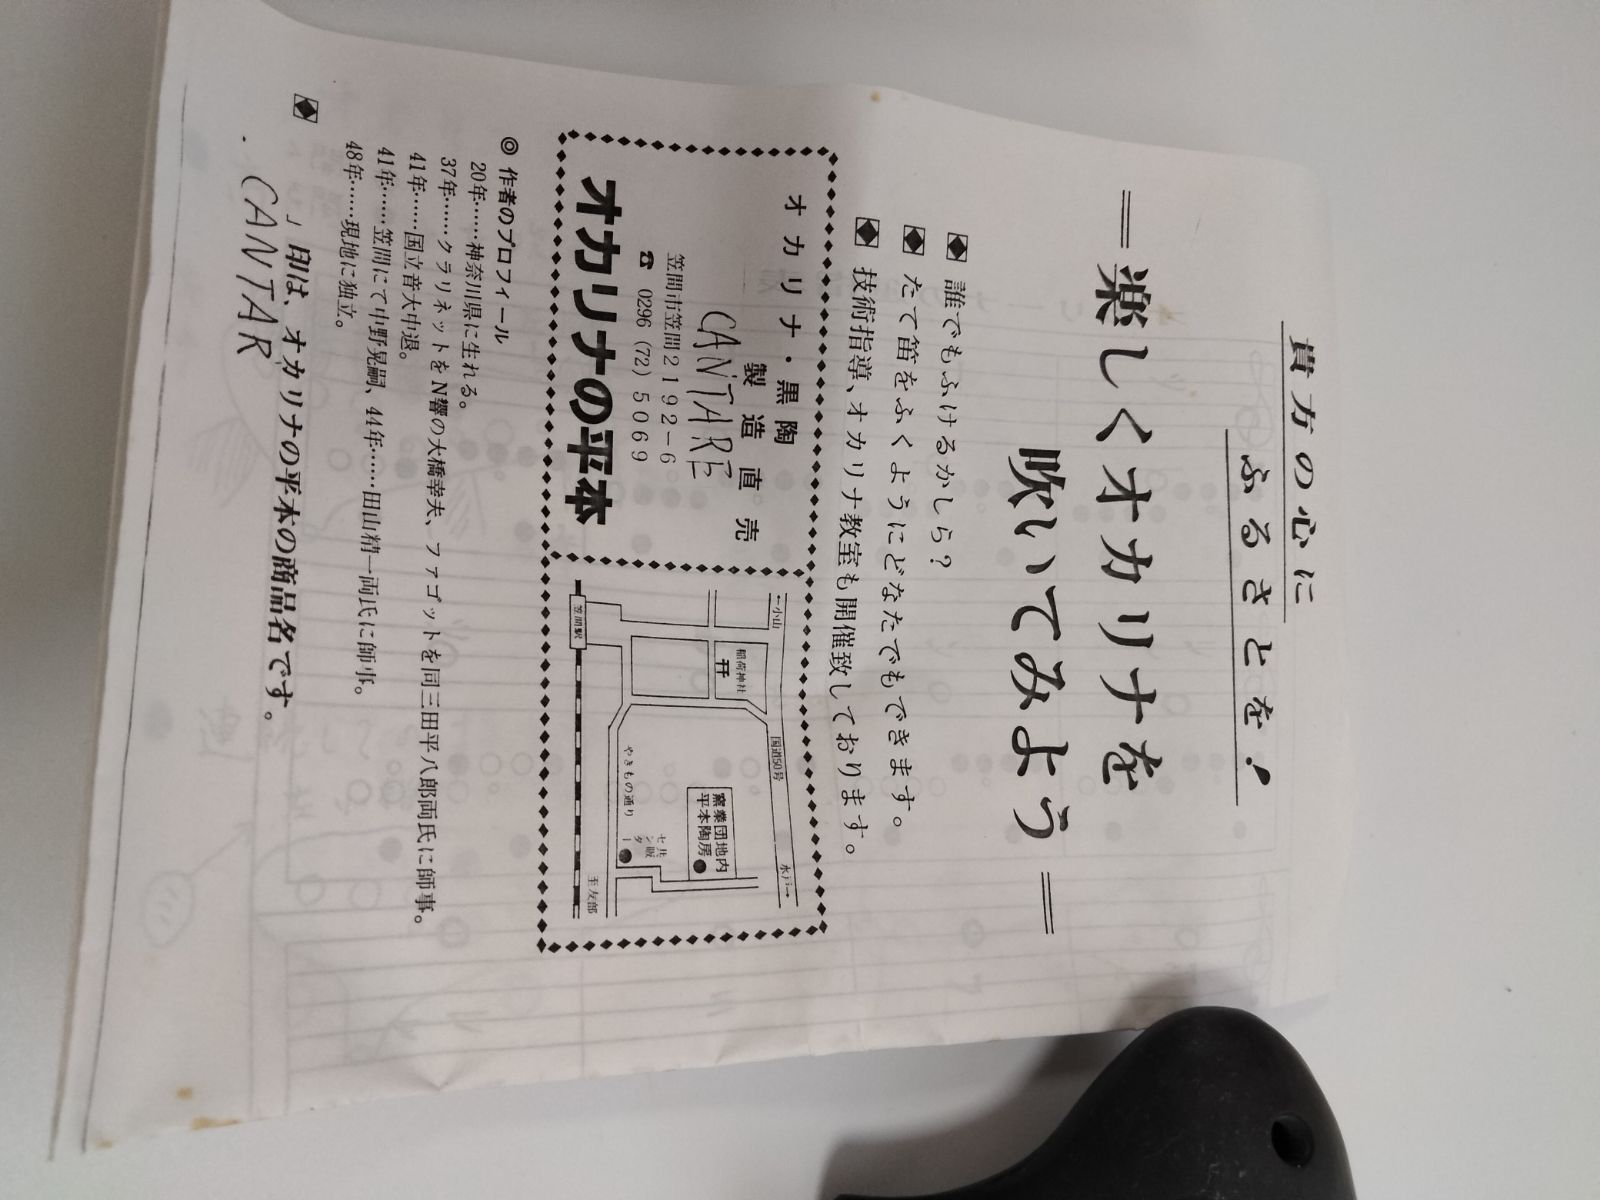 貴方の心に
ふるさとを!
楽しくオカリナを
吹いてみよう
誰でもふけるかしら?
たて笛をふくようにどなたでもできます。
技術指導、オカリナ教室も開催致しております。
オカリナ・黒陶
製造直売
CANTARE
笠間市笠間2192-6
☎ 0296 (72) 5069
オカリナの平本
←小山
稲荷神社
笠間駅
国道50号
やきもの通り
窯業団地内
平本陶房
共販
センター
水戸→
至友部
◎ 作者のプロフィール
20年……神奈川県に生れる。
37年……クラリネットをN響の大橋幸夫、ファゴットを同三田平八郎両氏に師事。
41年……国立音大中退。
41年……笠間にて中野晃嗣、44年……田山精一両氏に師事。
48年……現地に独立。
」印は、オカリナの平本の商品名です。
CANTAR